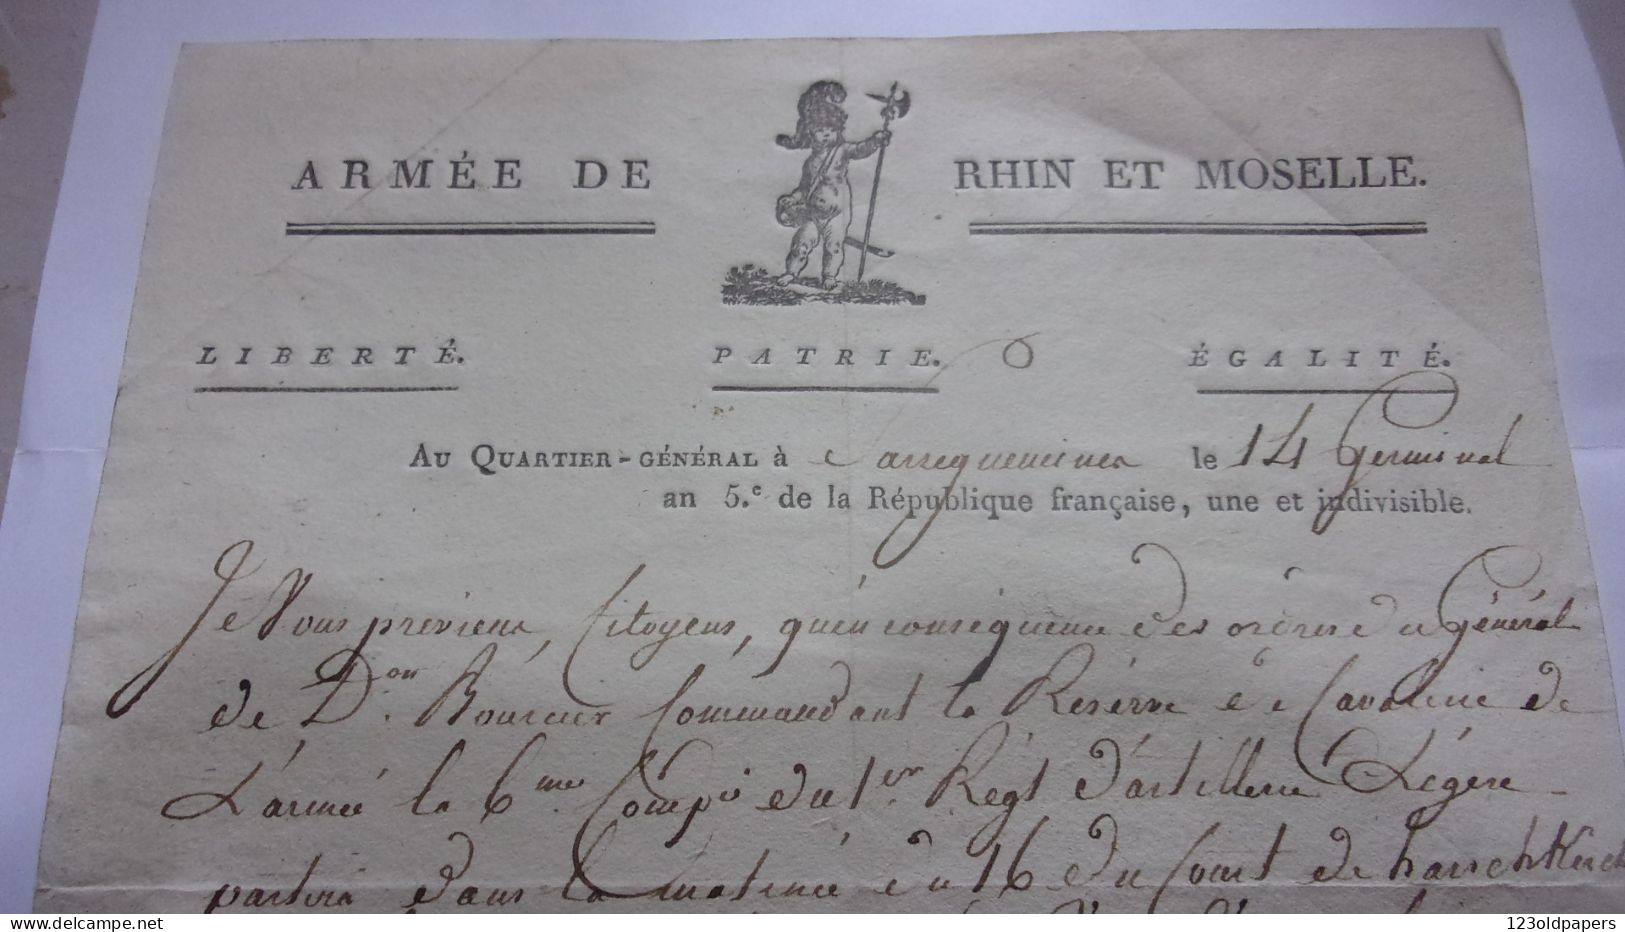 ARMÉE DE RHIN ET MOSELLE.
LIBERTÉ. PATRIE. ÉGALITÉ.
AU QUARTIER-GÉNÉRAL à Sarreguemines le 14 Germinal
an 5.e de la République française, une et indivisible.
Je Vous previens, Citoyens, qu'en conséquence des ordres du Général
de D.on Bourcier Commandant la Réserve de Cavalerie de
L'armée la 6.me Comp.ie du 1.er Régt D'artillerie Légère
partira dans la matinée du 16 du Court de harschkirch
123oldpapers